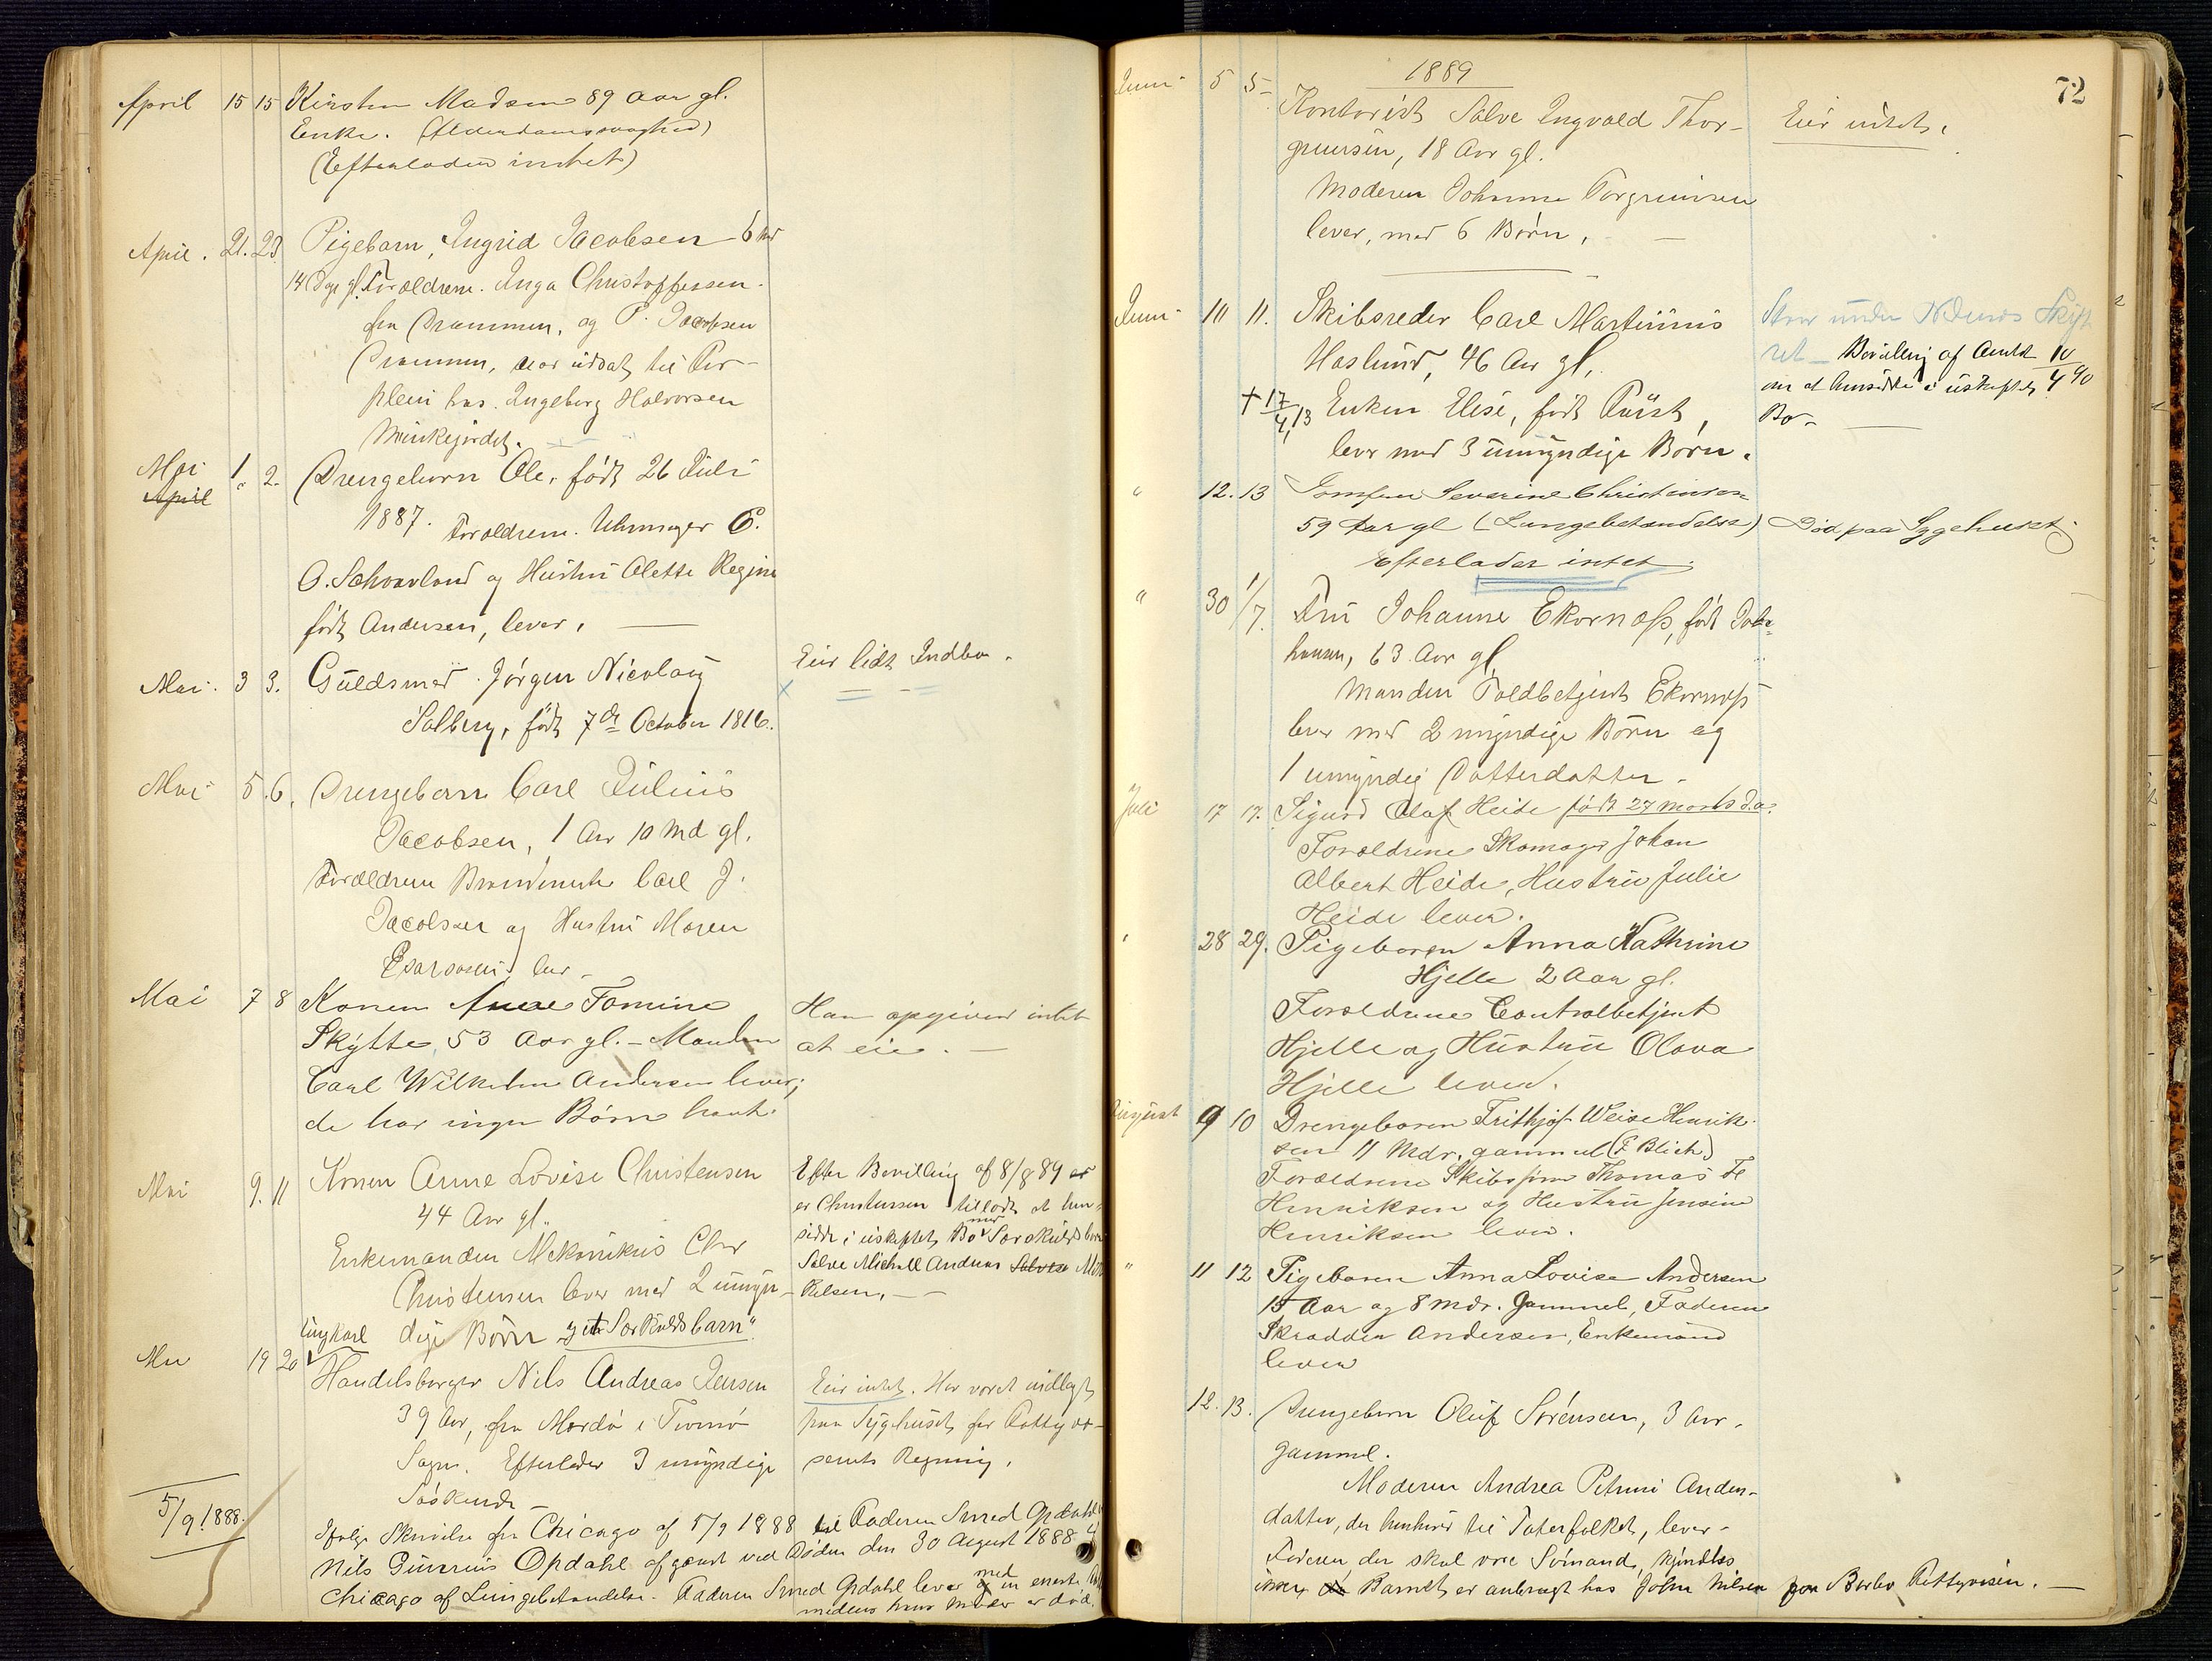 April 15 15 Kirsten Madsen 89 Aar gl.
Enke. (Alderdomssvaghed)
(Efterlader intet)
April. 21. 23. Pigebarn, Ingrid Jacobsen 6 Md
14 Dge gl. Forældrene. Inga Christoffersen
fra Drammen, og P. Jacobsen
Drammen, var udsat til For-
pleining hos Ingeborg Halvorsen
Mai April 1. 2. Drengebarn Ole, født 26 Juli
1887. Forældrene. Uhrmager E.
O. og Hustru Olette Regine
født Andersen, lever. —
Mai. 3 3. Guldsmed Jørgen Nicolay
Solberg, født 7de October 1816.
Eier lidt Indbo.
Mai 5. 6. Drengebarn Carl Julius
Jacobsen, 1 Aar 10 Md gl.
Forældrene Carl J.
Jacobsen og Hustru Maren
lever
Mai 7 8 Konen Anne Tomine
Skytte, 53 Aar gl. – Manden
Carl Wilhelm Andersen lever;
de har ingen Børn havt.
Han opgiver intet
at eie. —
Mai 9. 11 Konen Anne Lovise Christensen
44 Aar gl.
Enkemanden Mekanikus Chr
Christensen lever med 2 umyn-
dige Børn "et Særkuldsbarn"
Efter Bevilling af 8/8 89 er
er Christensen tilladt at hen-
sidde i uskiftet Bo med Særkuldsbarn
Salve Michall Andreas
kelsen. —
Ungkarl
Mai 19 20 Handelsborger Nils Andreas Jensen
39 Aar, fra Mærdø i Tromø
Sogn. Efterlader 3 myndige
Søskende
Eier intet. Har været indlagt
paa Sygehuset for Fattigvæ-
senets Regning.
5/9 1888. Ifølge Skrivelse fra Chicago af 5/9 1888 til Faderen Smed Opdahl
Nils Opdahl afgaaet ved Døden den 30 August 1888 i
Chicago af Lungebetændelse. Faderen Smed Opdahl lever med en eneste
medens hans Moder er død.
72
1889
Juni 5 5 Kontorist Salve Ingvald Thor-
grimsen, 18 Aar gl.
Moderen Johanne Torgrimsen
lever, med 6 Børn. —
Eier intet.
Juni 10 11. Skibsreder Carl Martinius
Haslund, 46 Aar gl.
† 17/4 13 Enken Elise, født Fürst,
lever med 3 umyndige Børn.
Staar under Nedenæs Skift
ret — Bevilling af Amtet 10/4 90
om at hensidde i uskiftet
Bo. —
" 12. 13 Jomfru Severine Christensen
59 Aar gl (Lungebetændelse)
Efterlader intet.
Død paa Sygehuset
" 30 1/7. Fru Johanne Ekornæss, født Joh-
hansen, 63 Aar gl.
Manden Toldbetjent Ekornæss
lever med 2 myndige Børn og
1 umyndig Datterdatter.
Juli 17 17. Sigurd Olaf Heide født 27 Marts d.a.
Forældrene Skomager Johan
Albert Heide, Hustru Julie
Heide lever.
" 28 29. Pigebarn Anna Kathrine
Hjelle 2 Aar gl.
Forældrene Contralbetjent
Hjelle og Hustru Olava
Hjelle lever.
August 9 10 Drengebarn Frithjof Weise Henrik-
sen 11 Mdr. gammel (F Blich)
Forældrene Skibsfører Thomas Fr
Henriksen og Hustru Jensine
Henriksen lever.
" 11 12 Pigebarn Anna Lovise Andersen
15 Aar og 8 Mdr. Gammel, Faderen
Skrædder Andersen, Enkemand
lever
12. 13. Drengebarn Oluf Sørensen, 3 Aar
gammel.
Moderen Andrea Petrine Anders-
datter, der henhører til Taterfolket, lever –
Faderen der skal være Sømand, kjendtes
ikke, Barnet er anbragt hos John Nilsen paa Barbo Fattigvæsen. —